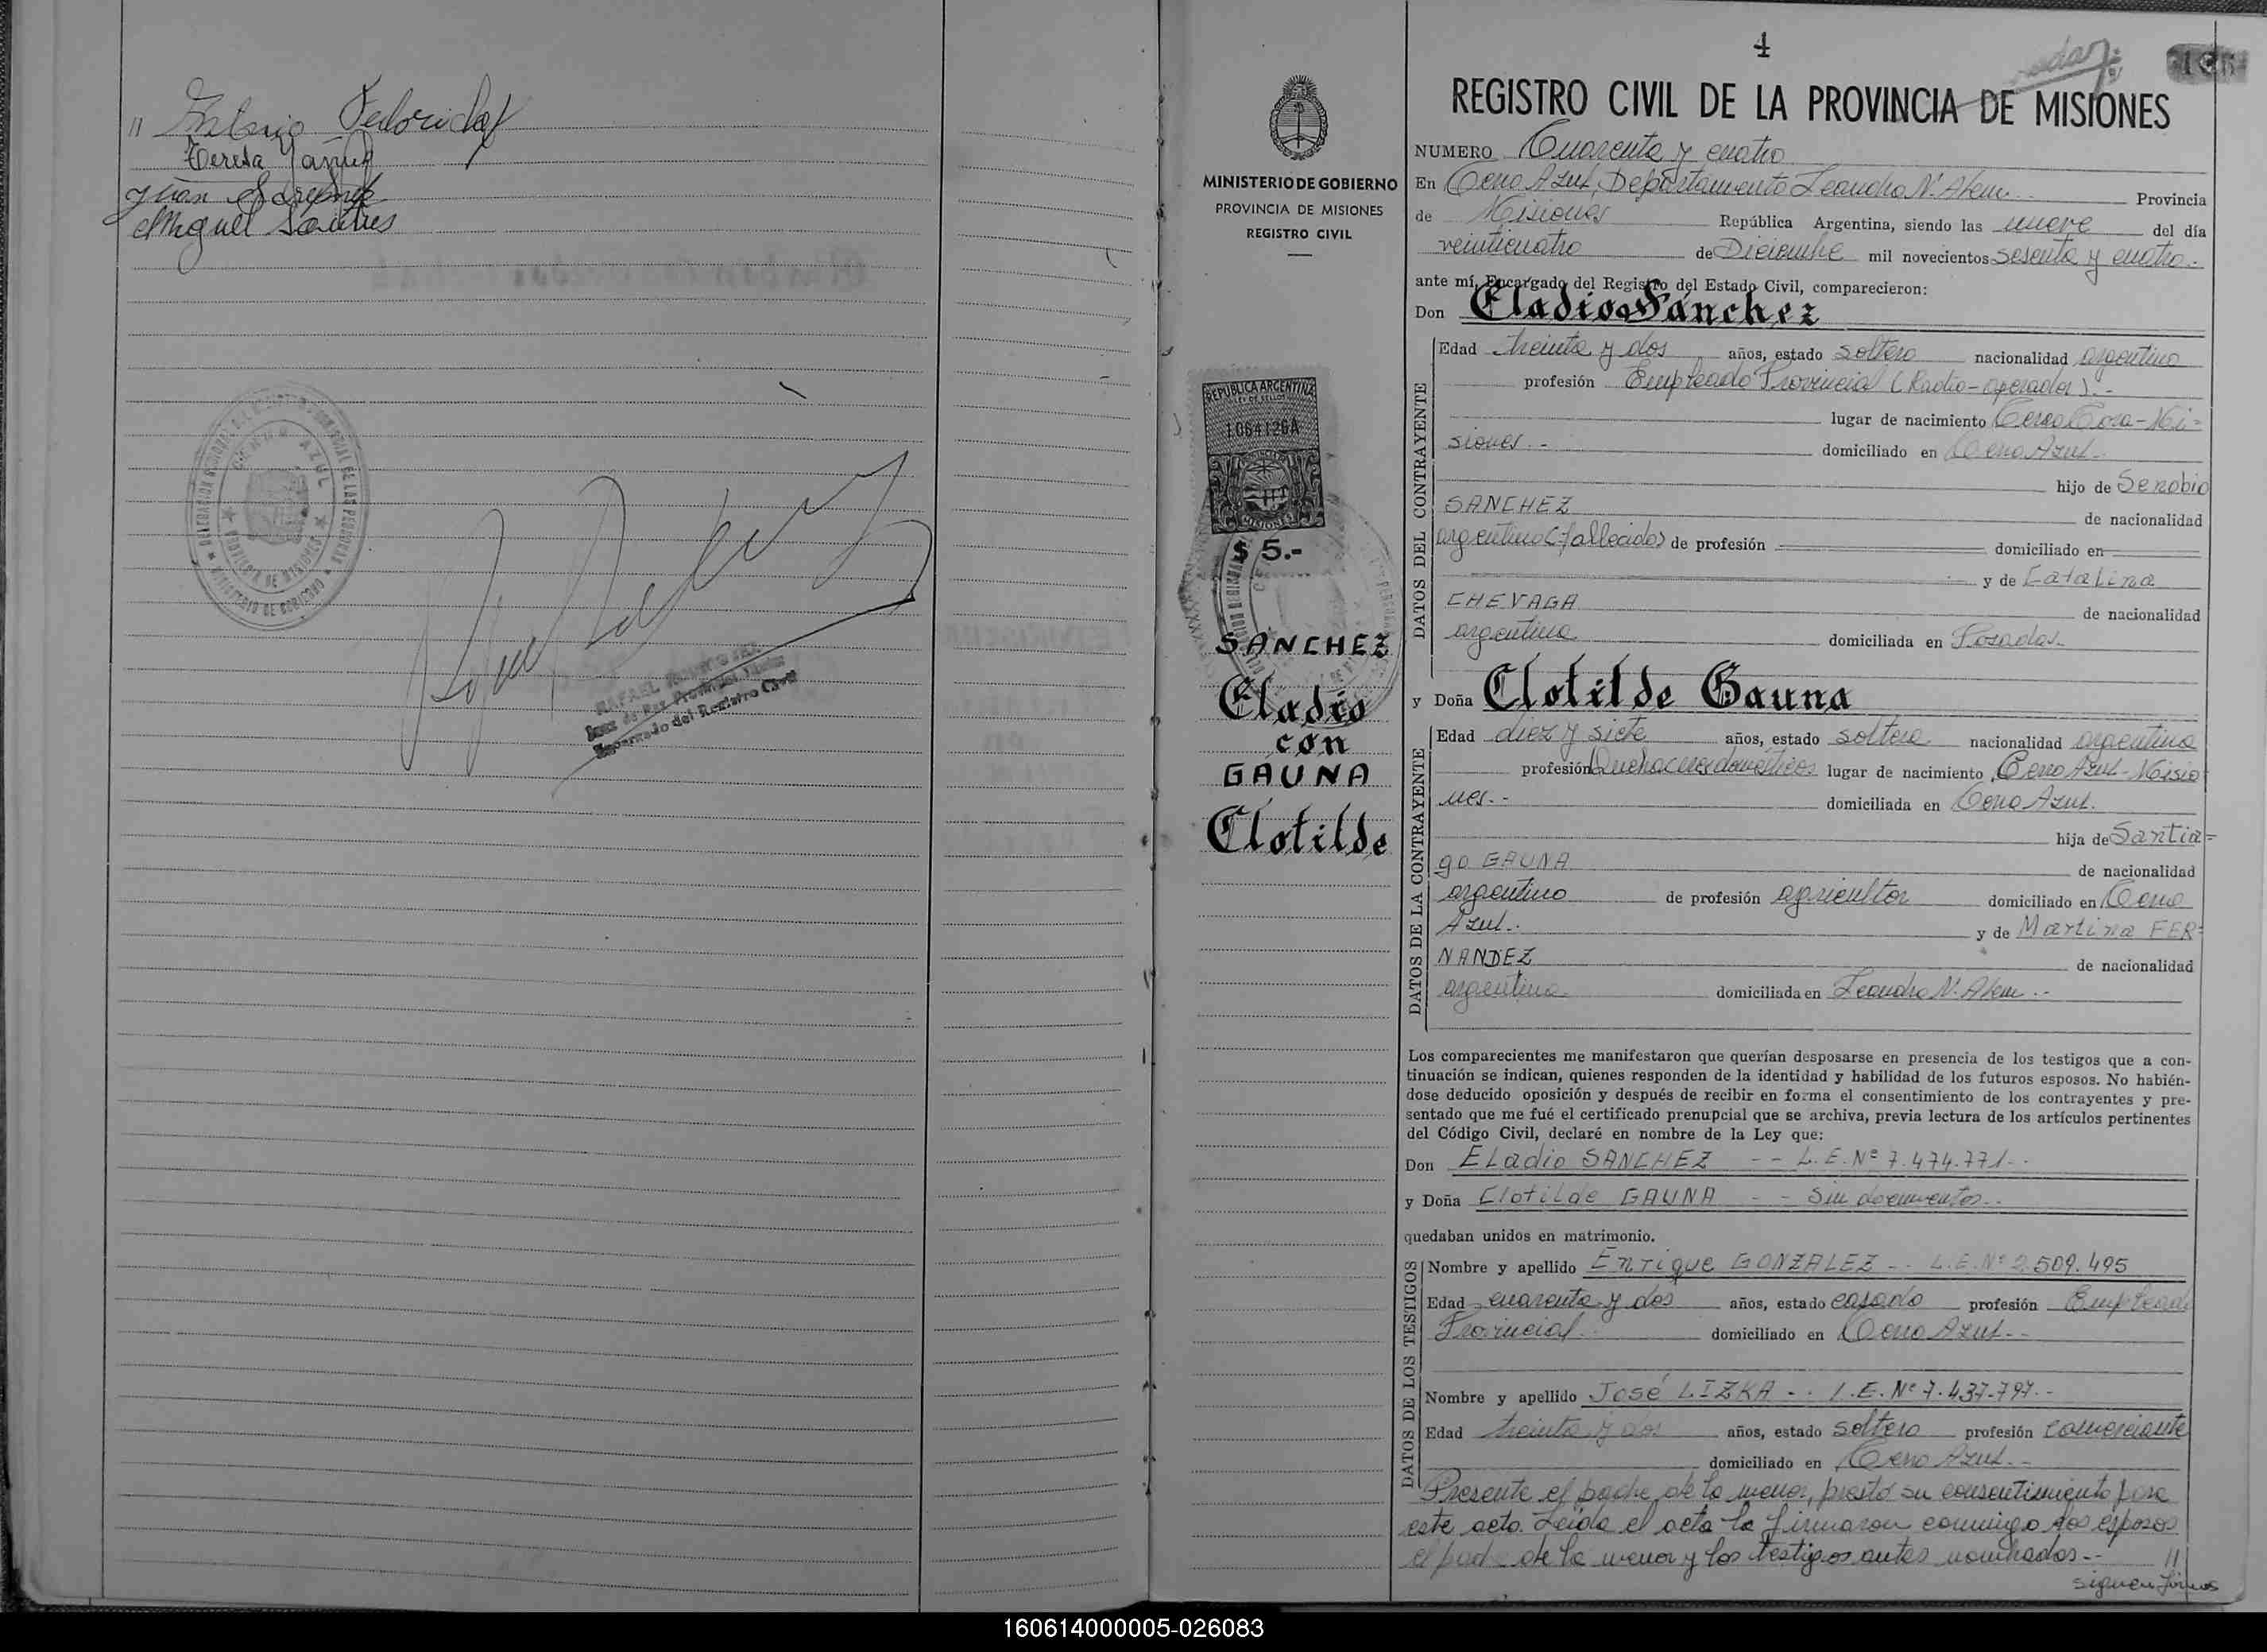 Teresa
Miguel
CERRO AZUL
PROVINCIA DE MISIONES
MINISTERIO DE GOBIERNO
RAFAEL
Juez de Paz
Encargado del Registro Civil
MINISTERIO DE GOBIERNO
PROVINCIA DE MISIONES
REGISTRO CIVIL
REPUBLICA ARGENTINA
LEY DE SELLOS
1064126A
MISIONES
$ 5.-
SANCHEZ
Eladio
con
GAUNA
Clotilde
4
REGISTRO CIVIL DE LA PROVINCIA DE MISIONES
NUMERO Cuarenta y cuatro
En Cerro Azul, Departamento Leandro N. Alem Provincia
de Misiones República Argentina, siendo las nueve del día
veinticuatro de Diciembre mil novecientos sesenta y cuatro.-
ante mí, Encargado del Registro del Estado Civil, comparecieron:
Don Eladio Sánchez
DATOS DEL CONTRAYENTE
Edad treinta y dos años, estado soltero nacionalidad argentino
profesión Empleado Provincial (Radio-operador).-
lugar de nacimiento Cerro Cora-Mi=
siones.- domiciliado en Cerro Azul.-
hijo de Senobio
SANCHEZ de nacionalidad
argentino (fallecido) de profesión domiciliado en
y de Catalina
CHEVAGA de nacionalidad
argentina domiciliada en Posadas.-
y Doña Clotilde Gauna
DATOS DE LA CONTRAYENTE
Edad diez y siete años, estado soltera nacionalidad argentina
profesión Quehaceres domésticos lugar de nacimiento Cerro Azul-Misio
nes.- domiciliada en Cerro Azul.
hija de Santia=
go GAUNA de nacionalidad
argentino de profesión agricultor domiciliado en Cerro
Azul.- y de Martina FER=
NANDEZ de nacionalidad
argentina domiciliada en Leandro N. Alem.--
Los comparecientes me manifestaron que querían desposarse en presencia de los testigos que a con-
tinuación se indican, quienes responden de la identidad y habilidad de los futuros esposos. No habién-
dose deducido oposición y después de recibir en forma el consentimiento de los contrayentes y pre-
sentado que me fué el certificado prenupcial que se archiva, previa lectura de los artículos pertinentes
del Código Civil, declaré en nombre de la Ley que:
Don Eladio SANCHEZ -- L.E. Nº 7.474.771.-
y Doña Clotilde GAUNA -- Sin documentos.-
quedaban unidos en matrimonio.
DATOS DE LOS TESTIGOS
Nombre y apellido Enrique GONZALEZ -- L.E. Nº 2.509.495
Edad cuarenta y dos años, estado casado profesión Empleado
Provincial domiciliado en Cerro Azul.-
Nombre y apellido José LIZKA -- L.E. Nº 7.437.797.-
Edad treinta y dos años, estado soltero profesión comerciante
domiciliado en Cerro Azul.-
Presente el padre de la menor, prestó su consentimiento para
este acto. Leida el acta la firmaron conmigo los esposos
el padre de la menor y los testigos antes nombrados.-- //
siguen firmas
160614000005-026083